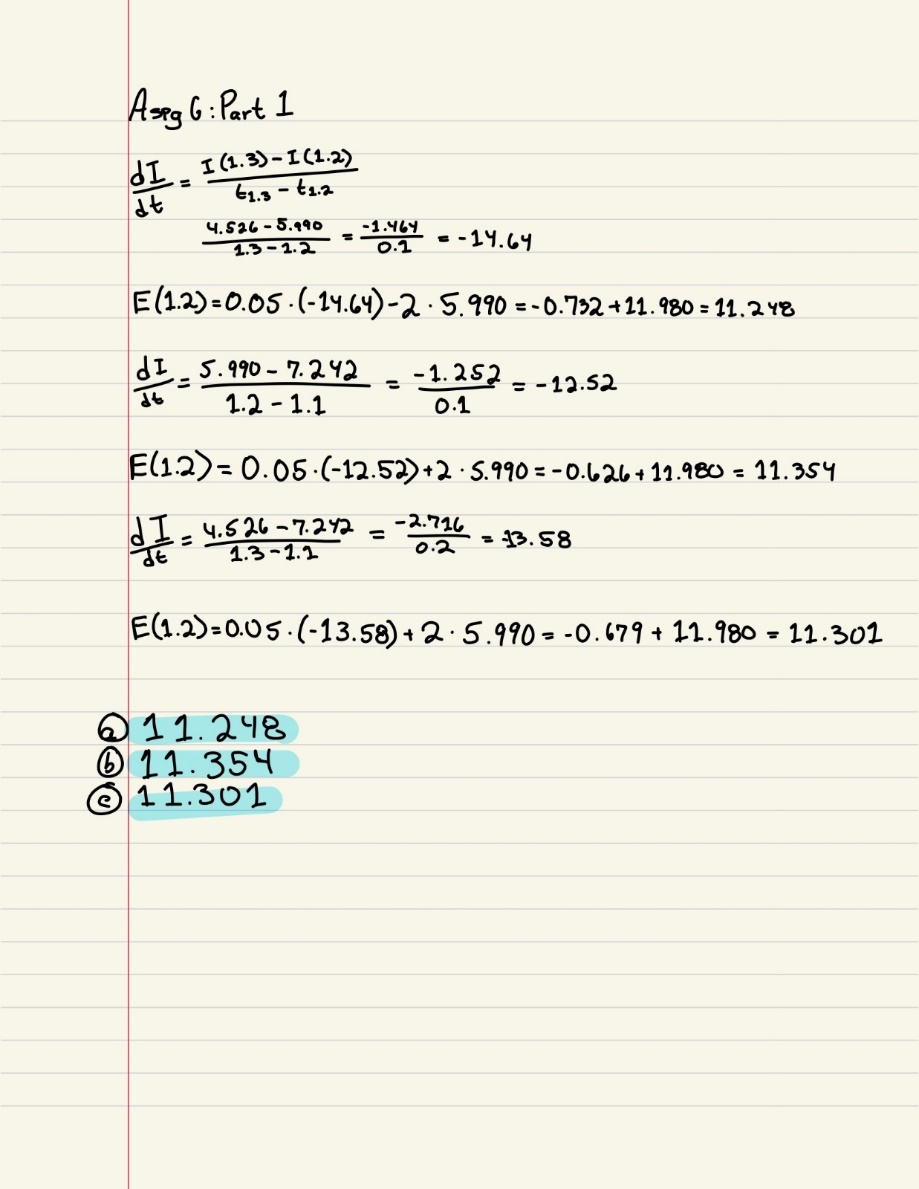 Aspg 6: Part 1
dI/dt = I(1.3) - I(1.2) / t1.3 - t1.2
4.526 - 5.990 / 1.3 - 1.2 = -1.464 / 0.1 = -14.64
E(1.2) = 0.05 · (-14.64) - 2 · 5.990 = -0.732 + 11.980 = 11.248
dI/dt = 5.990 - 7.242 / 1.2 - 1.1 = -1.252 / 0.1 = -12.52
E(1.2) = 0.05 · (-12.52) + 2 · 5.990 = -0.626 + 11.980 = 11.354
dI/dt = 4.526 - 7.242 / 1.3 - 1.1 = -2.716 / 0.2 = -13.58
E(1.2) = 0.05 · (-13.58) + 2 · 5.990 = -0.679 + 11.980 = 11.301
ⓐ 11.248
ⓑ 11.354
ⓒ 11.301